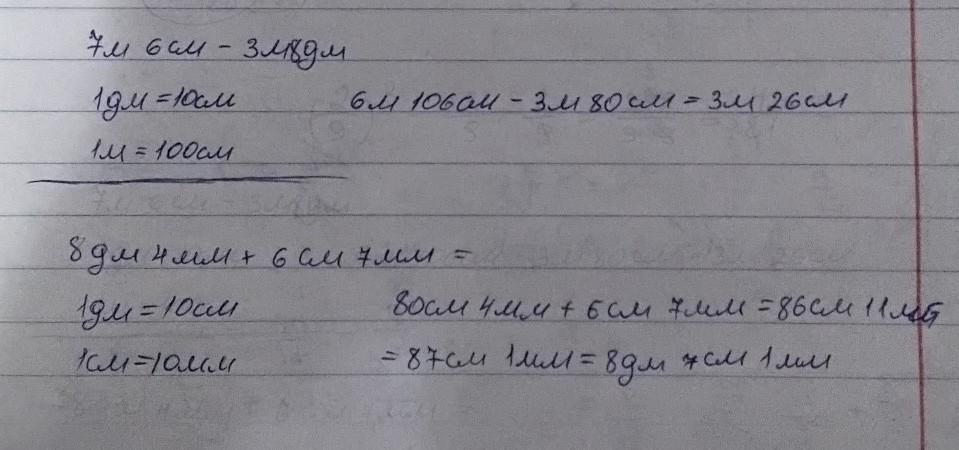 7м 6см - 3м8дм
1дм = 10см 6м 106см - 3м 80см = 3м 26см
1м = 100см
8дм 4мм + 6см 7мм =
1дм = 10см 80см 4мм + 6см 7мм = 86см 11мм
1см = 10мм = 87см 1мм = 8дм 7см 1мм